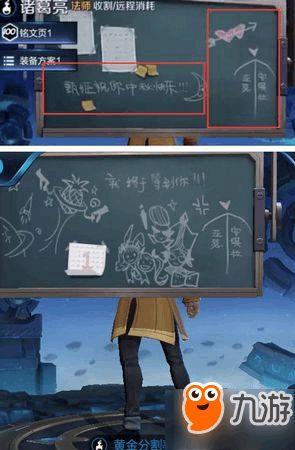 诸葛亮 法师 收割/远程消耗
100 铭文页1
装备方案1
甄姬祝你中秋快乐!!!
亚瑟
安琪拉
我终于等到你!!!
1
亚瑟
安琪拉
黄金分割率
九游